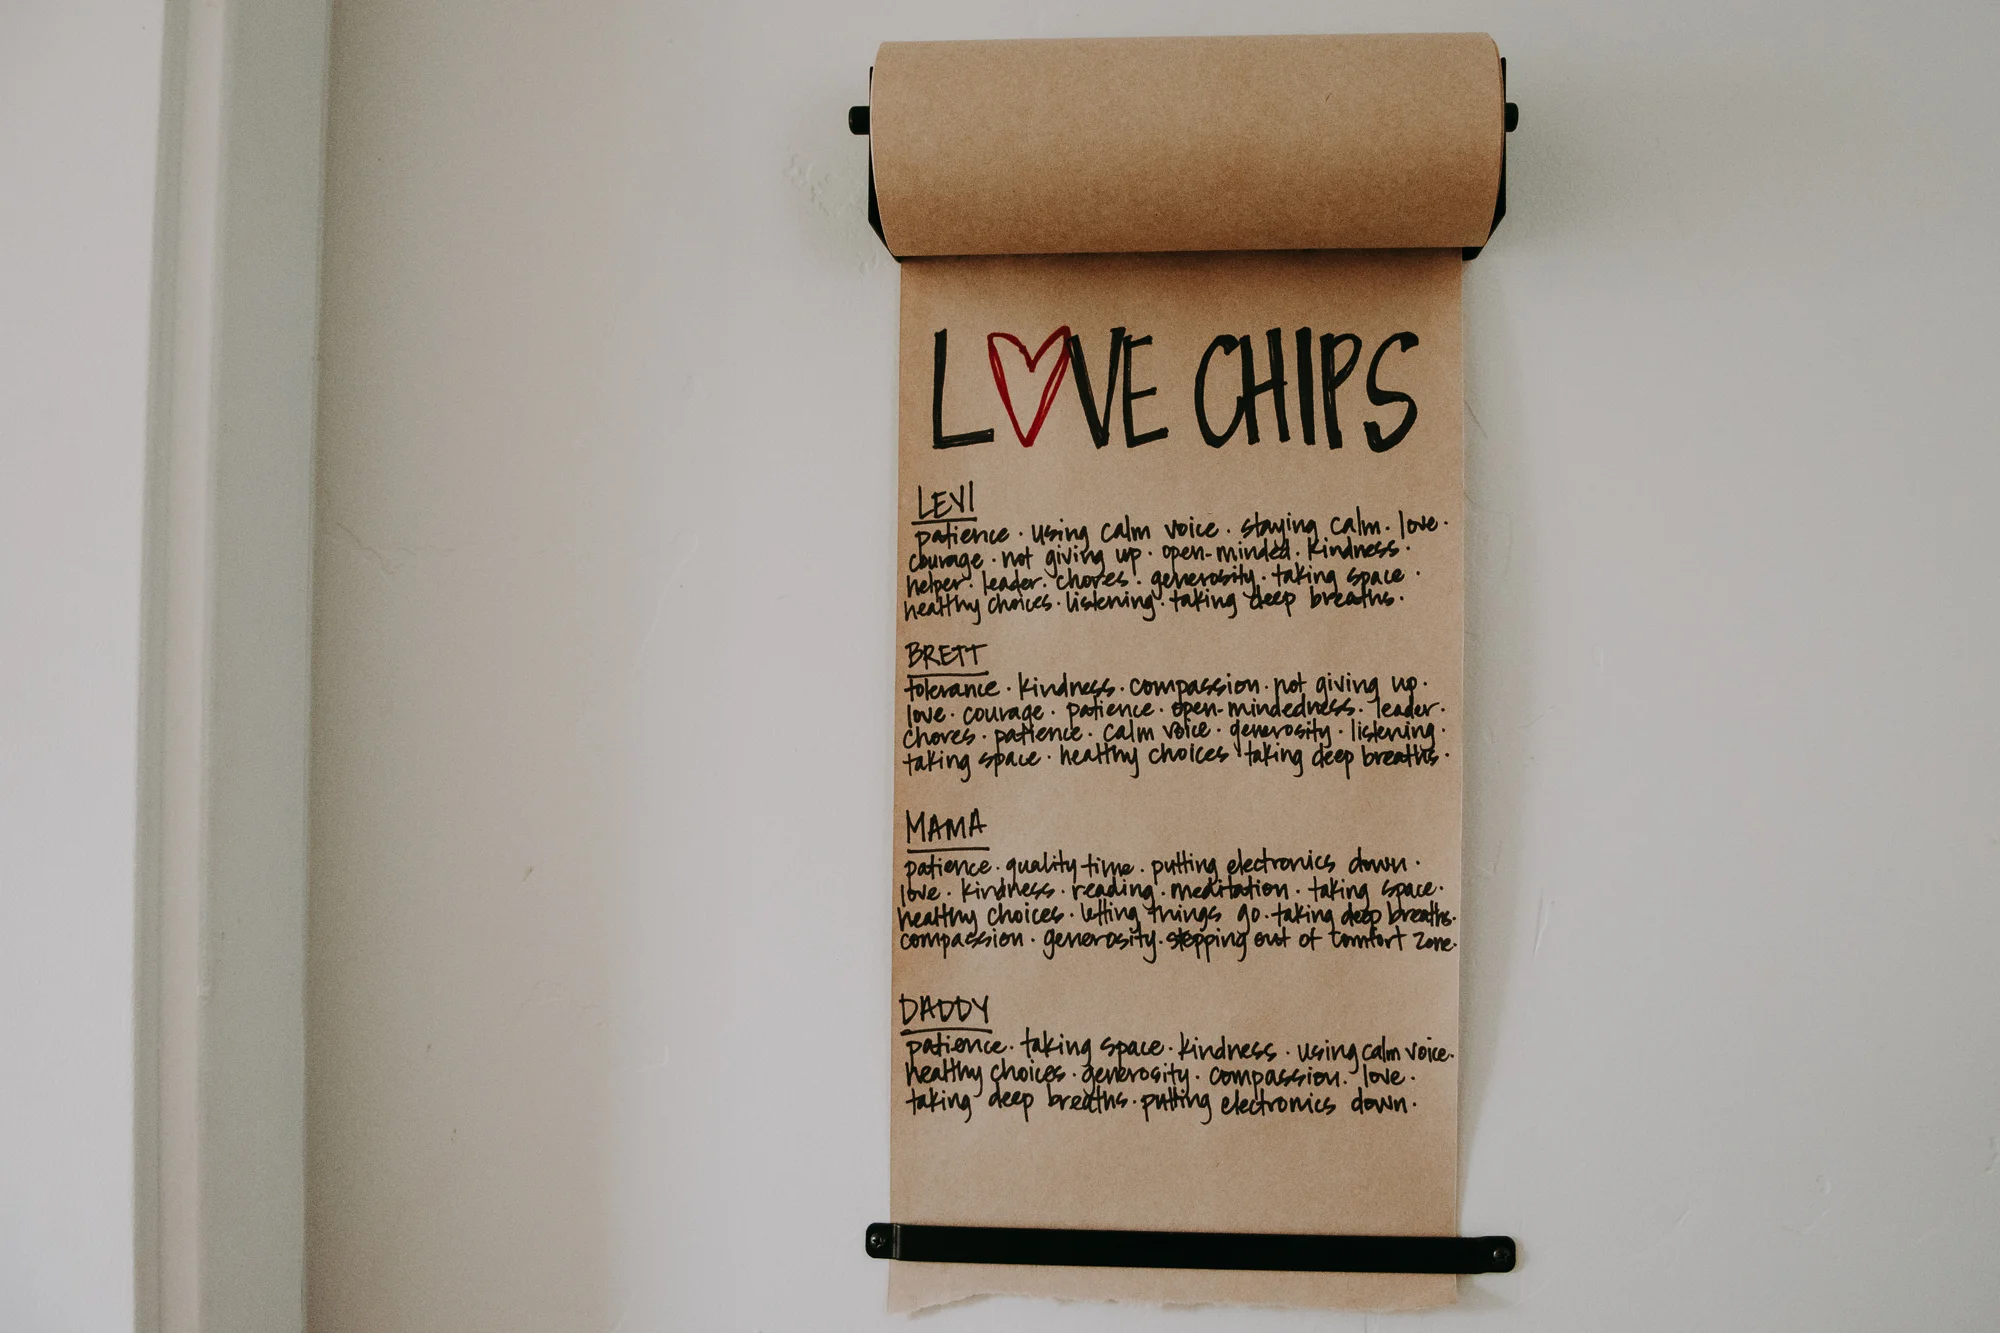 LOVE CHIPS
LEVI
patience · using calm voice · staying calm · love ·
courage · not giving up · open-minded · kindness ·
helper · leader · chores · generosity · taking space ·
healthy choices · listening · taking deep breaths ·
BRETT
tolerance · kindness · compassion · not giving up ·
love · courage · patience · open-mindedness · leader ·
chores · patience · calm voice · generosity · listening ·
taking space · healthy choices · taking deep breaths ·
MAMA
patience · quality time · putting electronics down ·
love · kindness · reading · meditation · taking space ·
healthy choices · letting things go · taking deep breaths ·
compassion · generosity · stepping out of comfort zone ·
DADDY
patience · taking space · kindness · using calm voice ·
healthy choices · generosity · compassion · love ·
taking deep breaths · putting electronics down ·